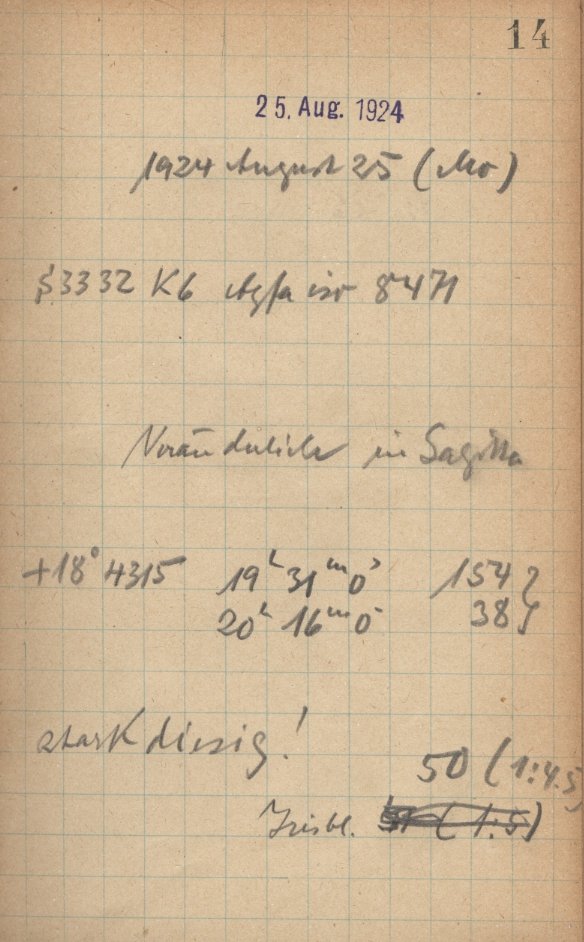 14
25. Aug. 1924
1924 August 25 (Mo)
S3332 K6 Agfa iso 8471
Veränderliche in Sagitta
+18° 4315 19ʰ 31ᵐ 0ˢ 154
20ʰ 16ᵐ 0ˢ 38
stark diesig!
50 (1:4.5)
Irisbl. (1:5)